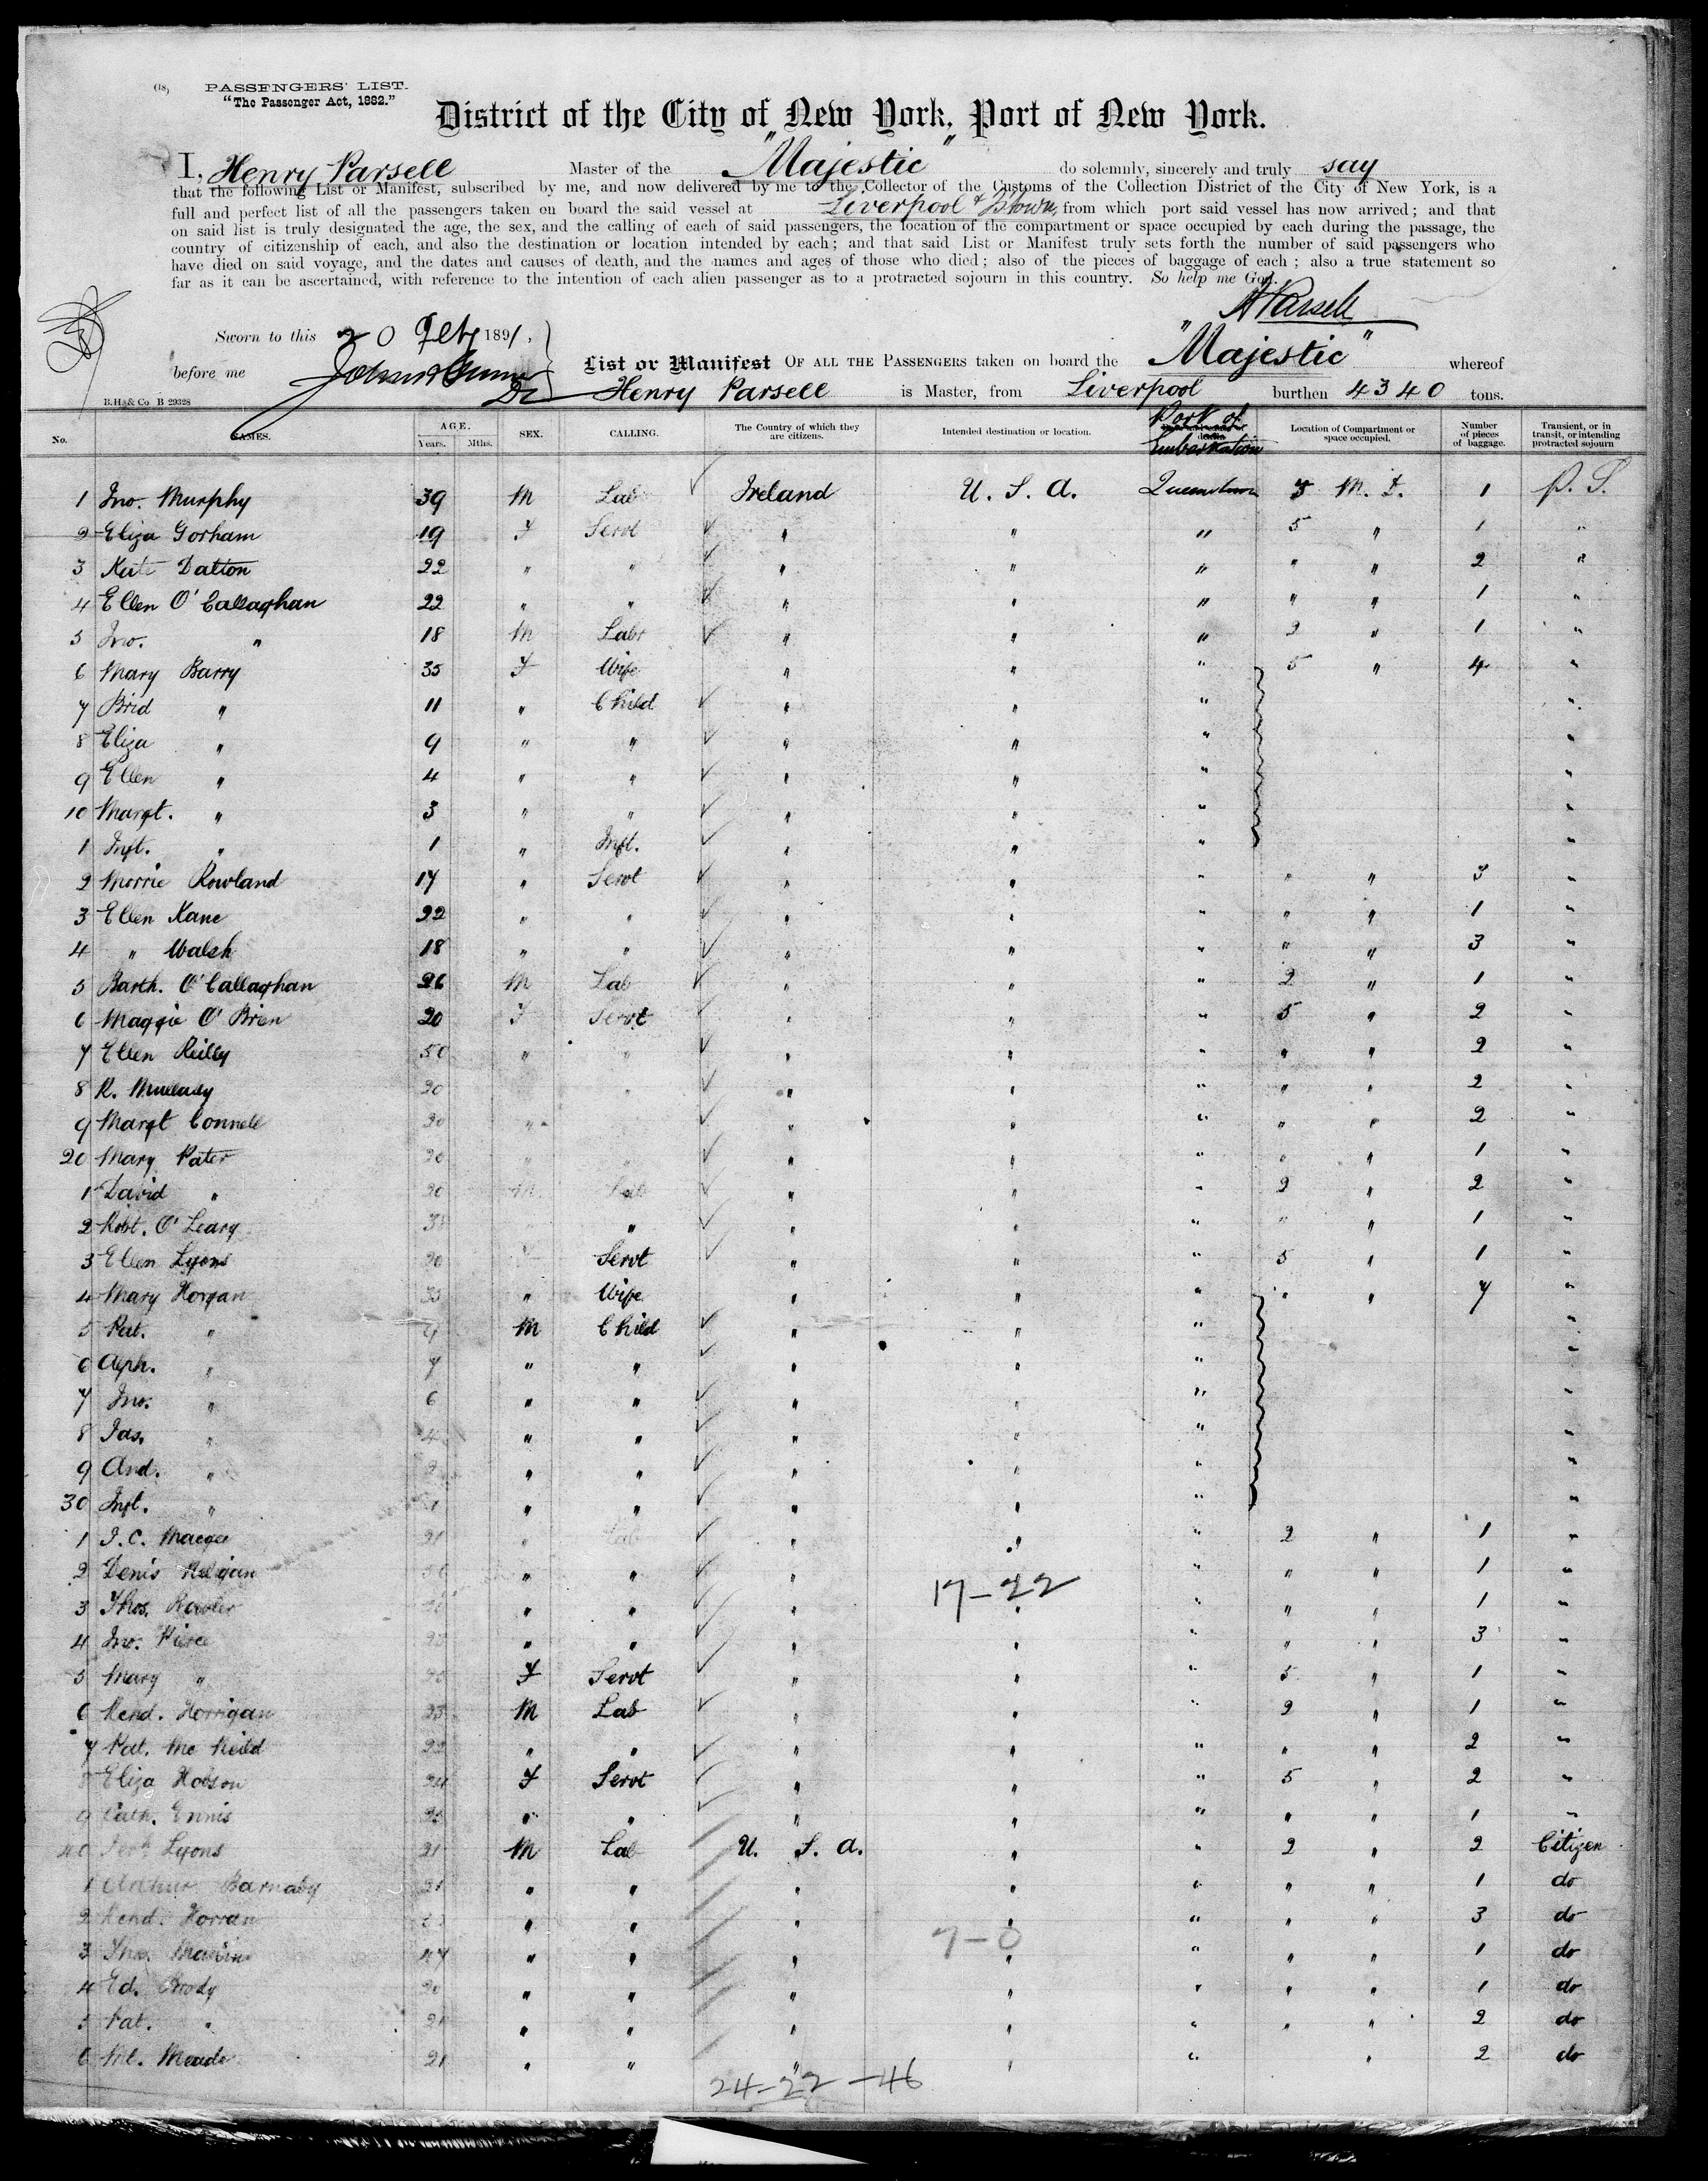 (18)
PASSENGERS' LIST.
"The Passenger Act, 1882."
District of the City of New York, Port of New York.
I, Henry Parsell Master of the "Majestic" do solemnly, sincerely and truly say
that the following List or Manifest, subscribed by me, and now delivered by me to the Collector of the Customs of the Collection District of the City of New York, is a
full and perfect list of all the passengers taken on board the said vessel at Liverpool & Qtown, from which port said vessel has now arrived; and that
on said list is truly designated the age, the sex, and the calling of each of said passengers, the location of the compartment or space occupied by each during the passage, the
country of citizenship of each, and also the destination or location intended by each; and that said List or Manifest truly sets forth the number of said passengers who
have died on said voyage, and the dates and causes of death, and the names and ages of those who died; also of the pieces of baggage of each; also a true statement so
far as it can be ascertained, with reference to the intention of each alien passenger as to a protracted sojourn in this country. So help me God.
H Parsell
Sworn to this 20 Feby 1891.
before me
List or Manifest OF ALL THE PASSENGERS taken on board the "Majestic" whereof
Henry Parsell is Master, from Liverpool burthen 4340 tons.
B.H.& Co B 29328
No. NAMES. AGE. Years. Mths. SEX. CALLING. The Country of which they are citizens. Intended destination or location. Port of Embarkation Location of Compartment or space occupied. Number of pieces of baggage. Transient, or in transit, or intending protracted sojourn
1 Jno. Murphy 39 M Lab Ireland U. S. A. Queenstown 3 M. D. 1 P. S.
2 Eliza Gorham 19 F Servt " " " 5 " 1 "
3 Kate Dalton 22 " " " " " " " 2 "
4 Ellen O'Callaghan 22 " " " " " " " 1 "
5 Jno. " 18 M Labr " " " 2 " 1 "
6 Mary Barry 35 F Wife " " " 5 " 4 "
7 Brid " 11 " Child " " " "
8 Eliza " 9 " " " " " "
9 Ellen " 4 " " " " " "
10 Margt. " 3 " " " " " "
1 Inft. " 1 " Inft. " " " "
2 Morrie Rowland 17 " Servt " " " " " 3 "
3 Ellen Kane 22 " " " " " " " 1 "
4 " Walsh 18 " " " " " " " 3 "
5 Barth. O'Callaghan 26 M Lab " " " 2 " 1 "
6 Maggie O'Brien 20 F Servt " " " 5 " 2 "
7 Ellen Reilly 50 " " " " " " " 2 "
8 R. Mullady 20 " " " " " " 2 "
9 Margt Connell 20 " " " " " " 2 "
20 Mary Pater 20 " " " " " " " 1 "
1 David " 20 M Lab " " " 2 " 2 "
2 Robt. O'Leary " " " " " " 1 "
3 Ellen Lyons 20 Servt " " " 5 " 1 "
4 Mary Horgan 35 " Wife " " " " " 7 "
5 Pat. " 9 M Child " " " "
6 " 7 " " " " " "
7 Jno. " 6 " " " " " "
8 Jas. " 4 " " " " " "
9 And. " " " " " " "
30 Inft. " 1 " " " " " "
1 J. C. 21 " Lab " " " 2 " 1 "
2 Denis " " " " " " " 1 "
17-22
3 Thos. " " " " " " " 1 "
4 Jno. Pierce " " " " " " " 3 "
5 Mary " F Servt " " " 5 " 1 "
6 Horrigan M Lab " " " 2 " 1 "
7 Pat. Mc Neild " " " " " " " 2 "
8 Eliza Hobson 24 F Servt " " " 5 " 2 "
9 Cath. Ennis " " " " " " " 1 "
40 Lyons 21 M Lab U. S. A. " " 2 " 2 Citizen
1 Arthur Barnaby 21 " " " " " " " 1 do
2 Horran " " " " " " " 3 do
7-0
3 47 " " " " " " " 1 do
4 Ed. Brody 20 " " " " " " " 1 do
5 Pat. " 21 " " " " " " " 2 do
6 Ml. Meade 21 " " " " " " 2 do
24-22-46